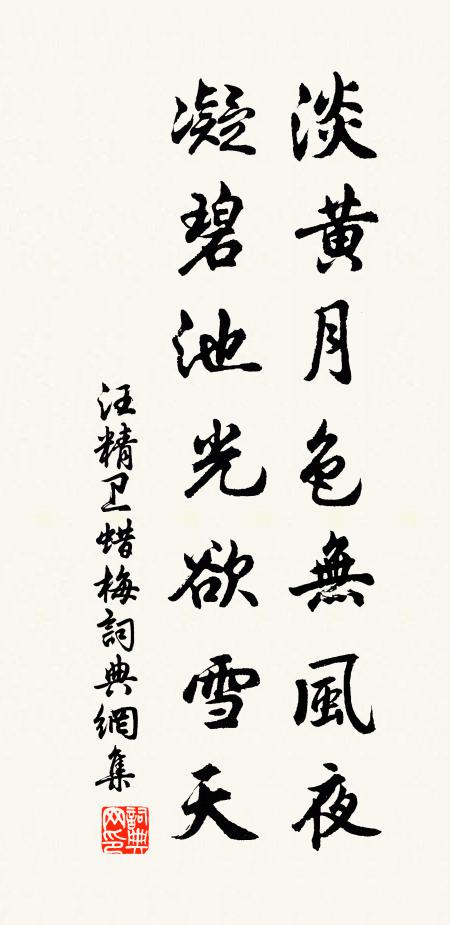 淡黄月色無風夜
凝碧池光欲雪天
汪精卫蜡梅詞典網集
詞典网印